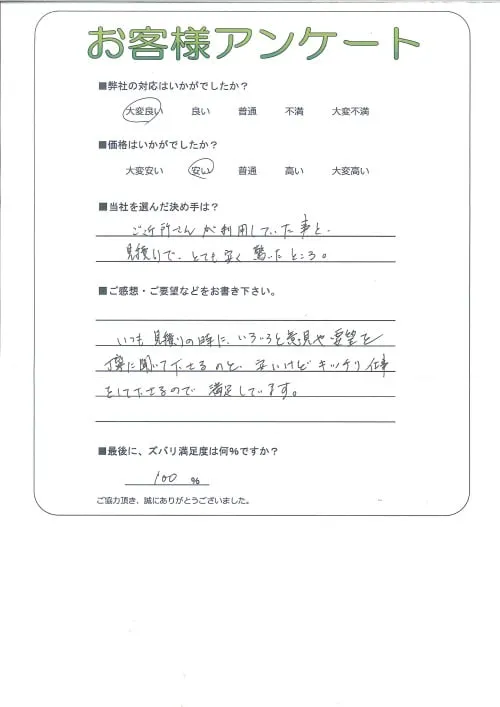 お客様アンケート
■弊社の対応はいかがでしたか？
大変良い 良い 普通 不満 大変不満
■価格はいかがでしたか？
大変安い 安い 普通 高い 大変高い
■当社を選んだ決め手は？
ご近所さんが利用していた事と、
見積りで、とても安く驚いたところ。
■ご感想・ご要望などをお書き下さい。
いつも見積りの時に、いろいろと意見や要望を
丁寧に聞いて下さるのと、安いけどキッチリ仕事
をして下さるので満足しています。
■最後に、ズバリ満足度は何％ですか？
100 %
ご協力頂き、誠にありがとうございました。